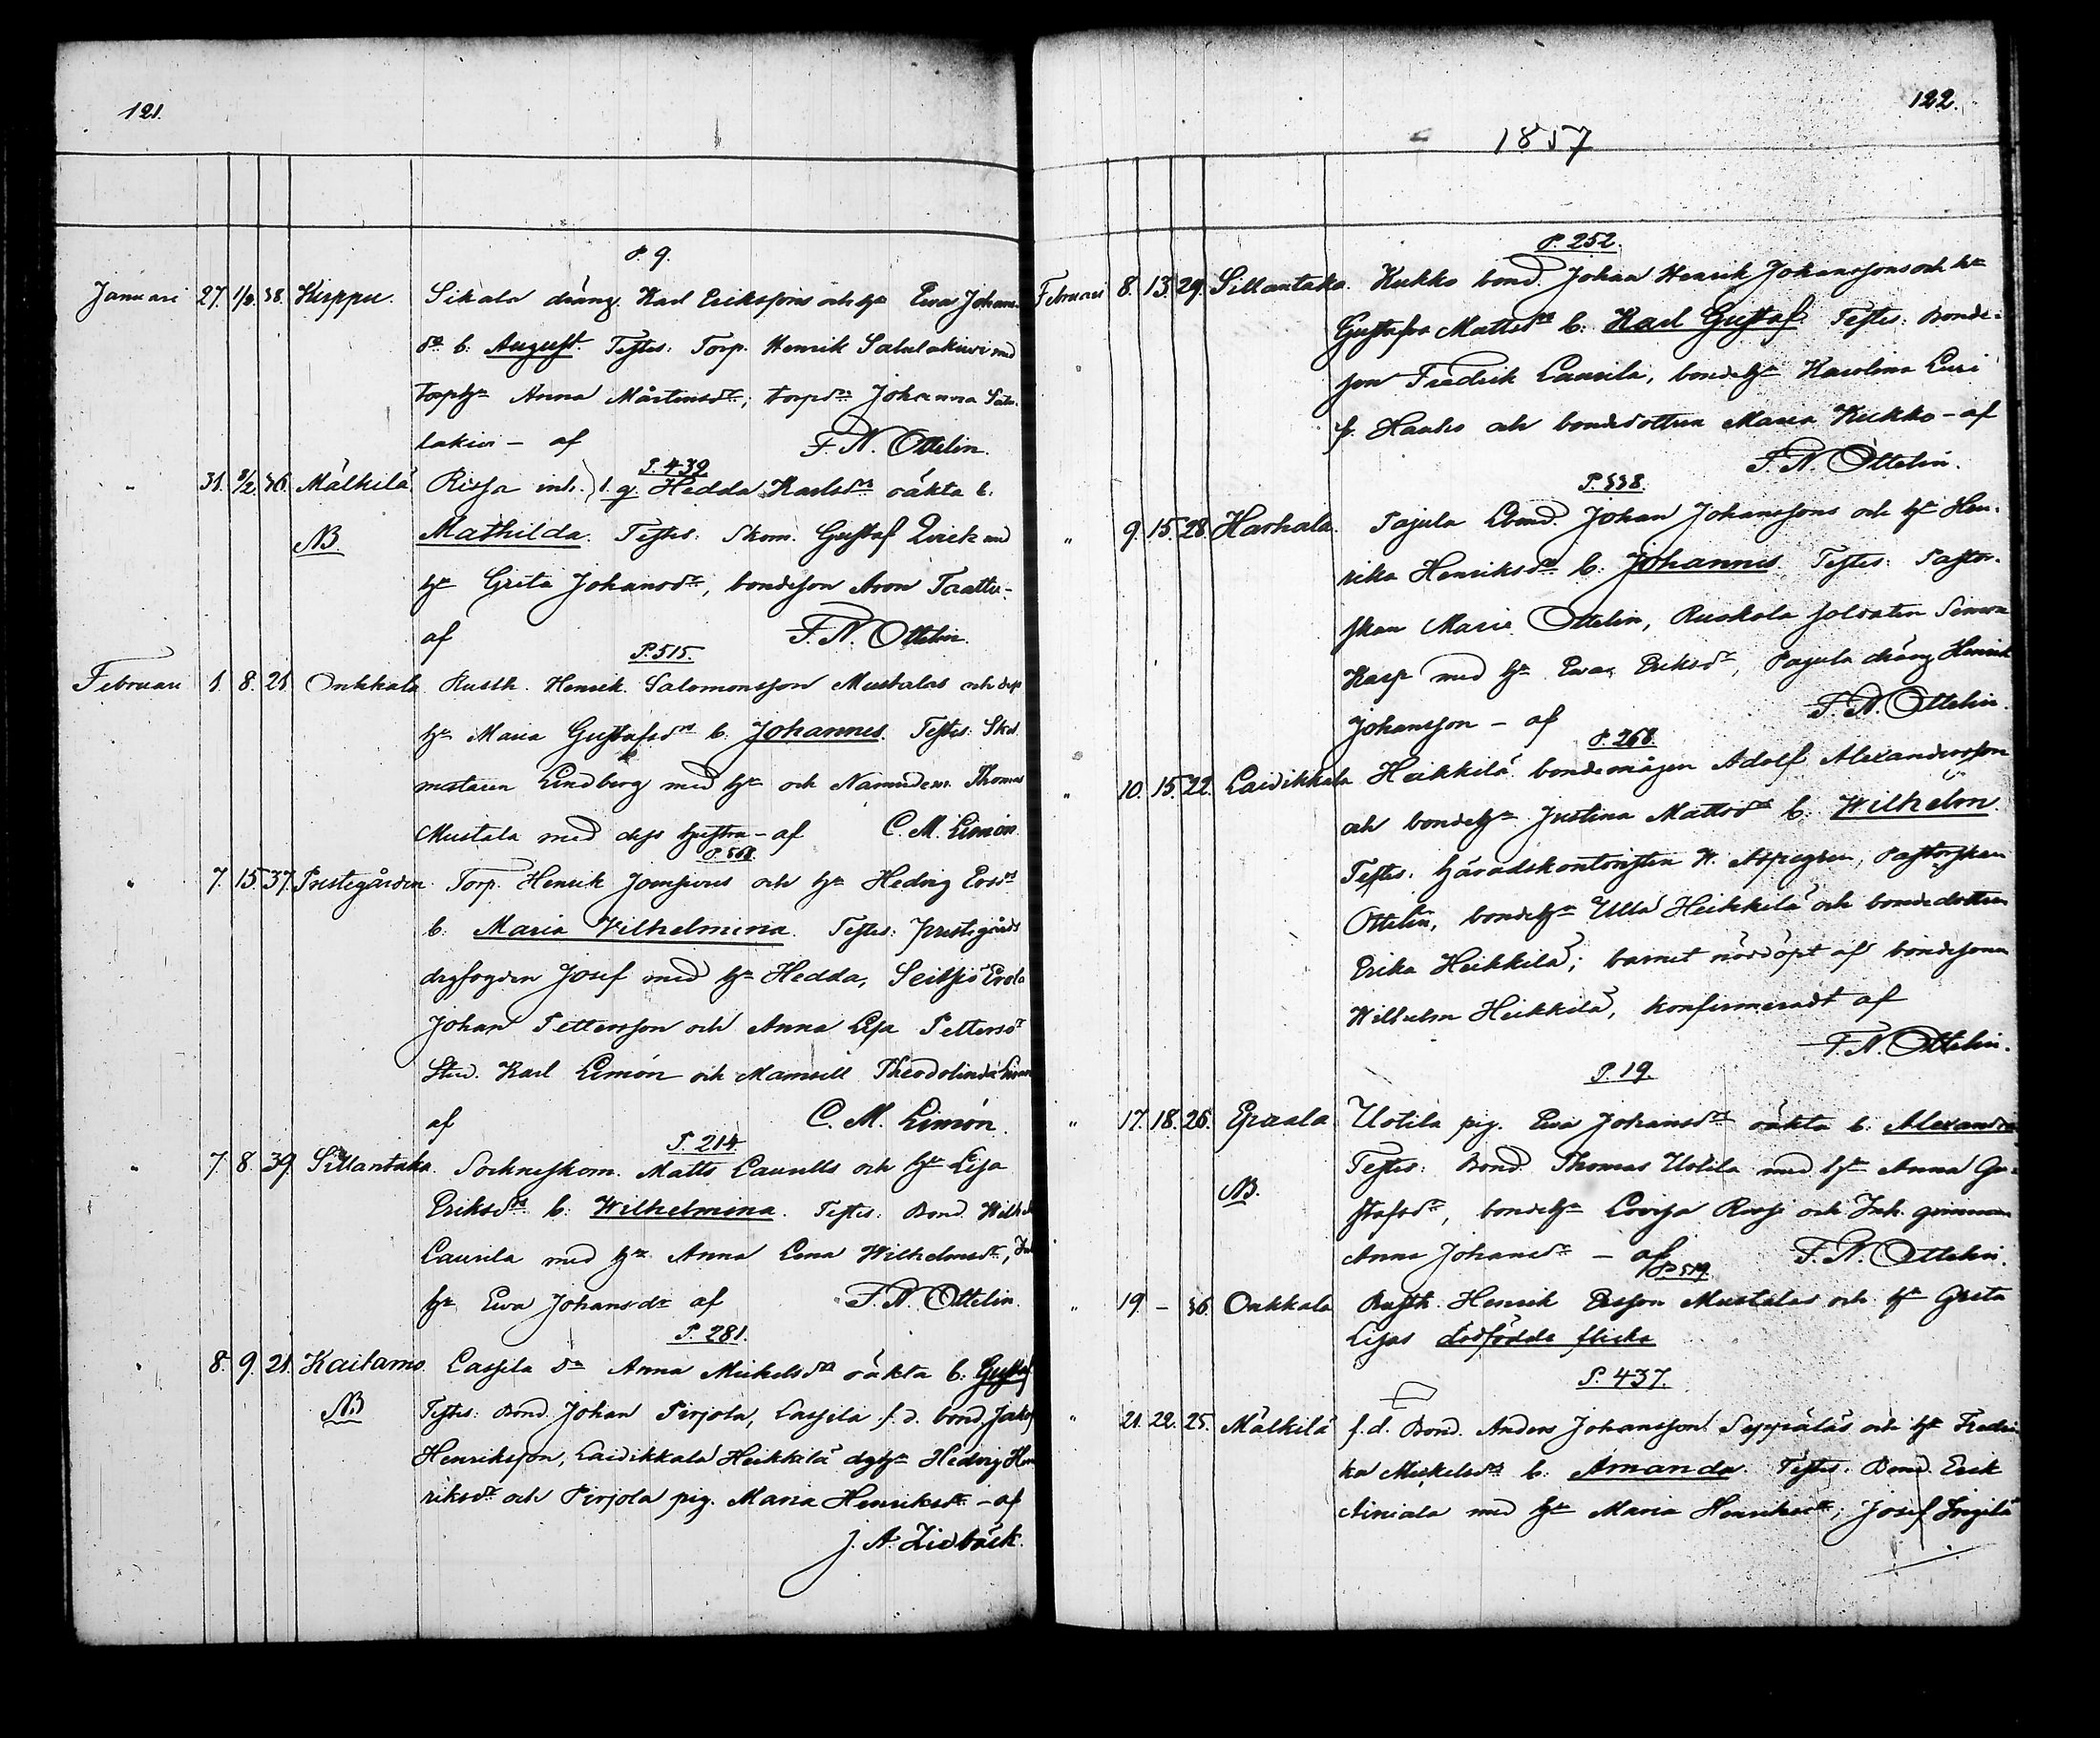 121.
P. 9.
Januari 27. 1/2. 38. Kurppu. Sikala dräng. Karl Erikssons och h:u Ewa Johans-
d:r b: August. Testes: Torp. Henrik Salulakivi med
torph:u Anna Mårtensd:r; torpd:n Johanna Salu-
lakivi – af F. N. Ottelin.
P. 439
" 31. 8/2. 36. Mälkilä Rissa inh. l. q. Hedda Karlsd:rs oäkta b:
NB Mathilda. Testes: Skom. Gustaf Qvick med
h:u Greta Johansd:r, bondeson Aron Taattu –
af F. N. Ottelin.
P. 515.
Februari 1. 8. 21. Onkkala Rusth. Henrik Salomonsson Mustalas och dess
h:u Maria Gustafsd:rs b. Johannes. Testes: Skol-
mästaren Lindberg med h:u och Nämndem. Thomas
Mustala med dess hustru – af C. M. Limón
P. 568.
" 7. 15. 37. Prestegården Torp. Henrik Joensivus och h:u Hedvig Ersd:rs
b: Maria Vilhelmina. Testes: prestgårds
dagfogden Josef med h:u Hedda, Seitsiö Erola
Johan Pettersson och Anna Lisa Pettersd:r
Stud. Karl Limón och Mamsell Theodolinda Limón
af C. M. Limón.
P. 214
" 7. 8. 39. Sillantaka. Sockneskom. Matts Laurells och h:u Lisa
Eriksd:rs b: Wilhelmina. Testes: Bond. Wilhelm
Laurila med h:u Anna Lena Wilhelmsd:r, Inh
h:u Ewa Johansd:r af F. N. Ottelin.
P. 281.
" 8. 9. 21. Kaitamo. Lassila d:n Anna Mickelsd:rs oäkta b: Gustaf
NB Testes: Bond. Johan Pirjola, Lassila f. d. bond. Jakob
Henriksson, Laidikkala Heikkilä dgh:u Hedvig Hen
riksd:r och Pirjola pig. Maria Henriksd:r – af
J. A. Lidbäck.
122.
1857
P. 252.
Februari 8. 13. 29. Sillantaka. Kukko bond. Johan Henrik Johanssons och h:u
Gustafva Mattsd:rs b: Karl Gustaf. Testes: Bonde-
son Fredrik Laurila, bondeh:u Karolina Lusi
fr. Hauho och bondedottren Maria Kukko – af
F. N. Ottelin.
P. 338.
" 9. 15. 28. Harhala. Pajula Lbond. Johan Johanssons och h:u Hen-
rika Henriksd:rs b: Johannes. Testes: Pastor-
skan Marie Ottelin, Ruokola soldaten Simon
Karp med h:u Ewa Eriksd:r, Pajula dräng Henrik
Johansson – af F. N. Ottelin.
P. 268.
" 10. 15. 22. Laidikkala Heikkilä bondemågen Adolf Alexandersson
och bondeh:u Justina Mattsd:rs b: Wilhelm.
Testes: häradskontoristen W. Aspegren, Pastorskan
Ottelin, bondeh:u Ulla Heikkilä och bondedottren
Erika Heikkilä; barnet nöddöpt af bondesonen
Wilhelm Heikkilä, konfirmeradt af
F. N. Ottelin.
P. 19.
" 17. 18. 26. Epaala Uotila pig. Ewa Johansd:rs oäkta b: Alexandra
NB. Testes: Bond. Thomas Uotila med h:u Anna Gu-
stafsd:r, bondeh:u Lovisa Rossi och Inh. qvinnan
Anna Johansd:r – af F. N. Ottelin.
P. 519.
" 19. – 36. Onkkala Rusth. Henrik Ersson Mustalas och h:u Greta
Lisas dödfödda flicka
P. 437.
" 21. 22. 25. Mälkilä f. d. Bond. Anders Johansson Seppäläs och h:u Fredri
ka Mickelsd:rs b: Amanda. Testes: Bond. Erik
Äiniälä med h:u Maria Henriksd:r; Josef Soigilä